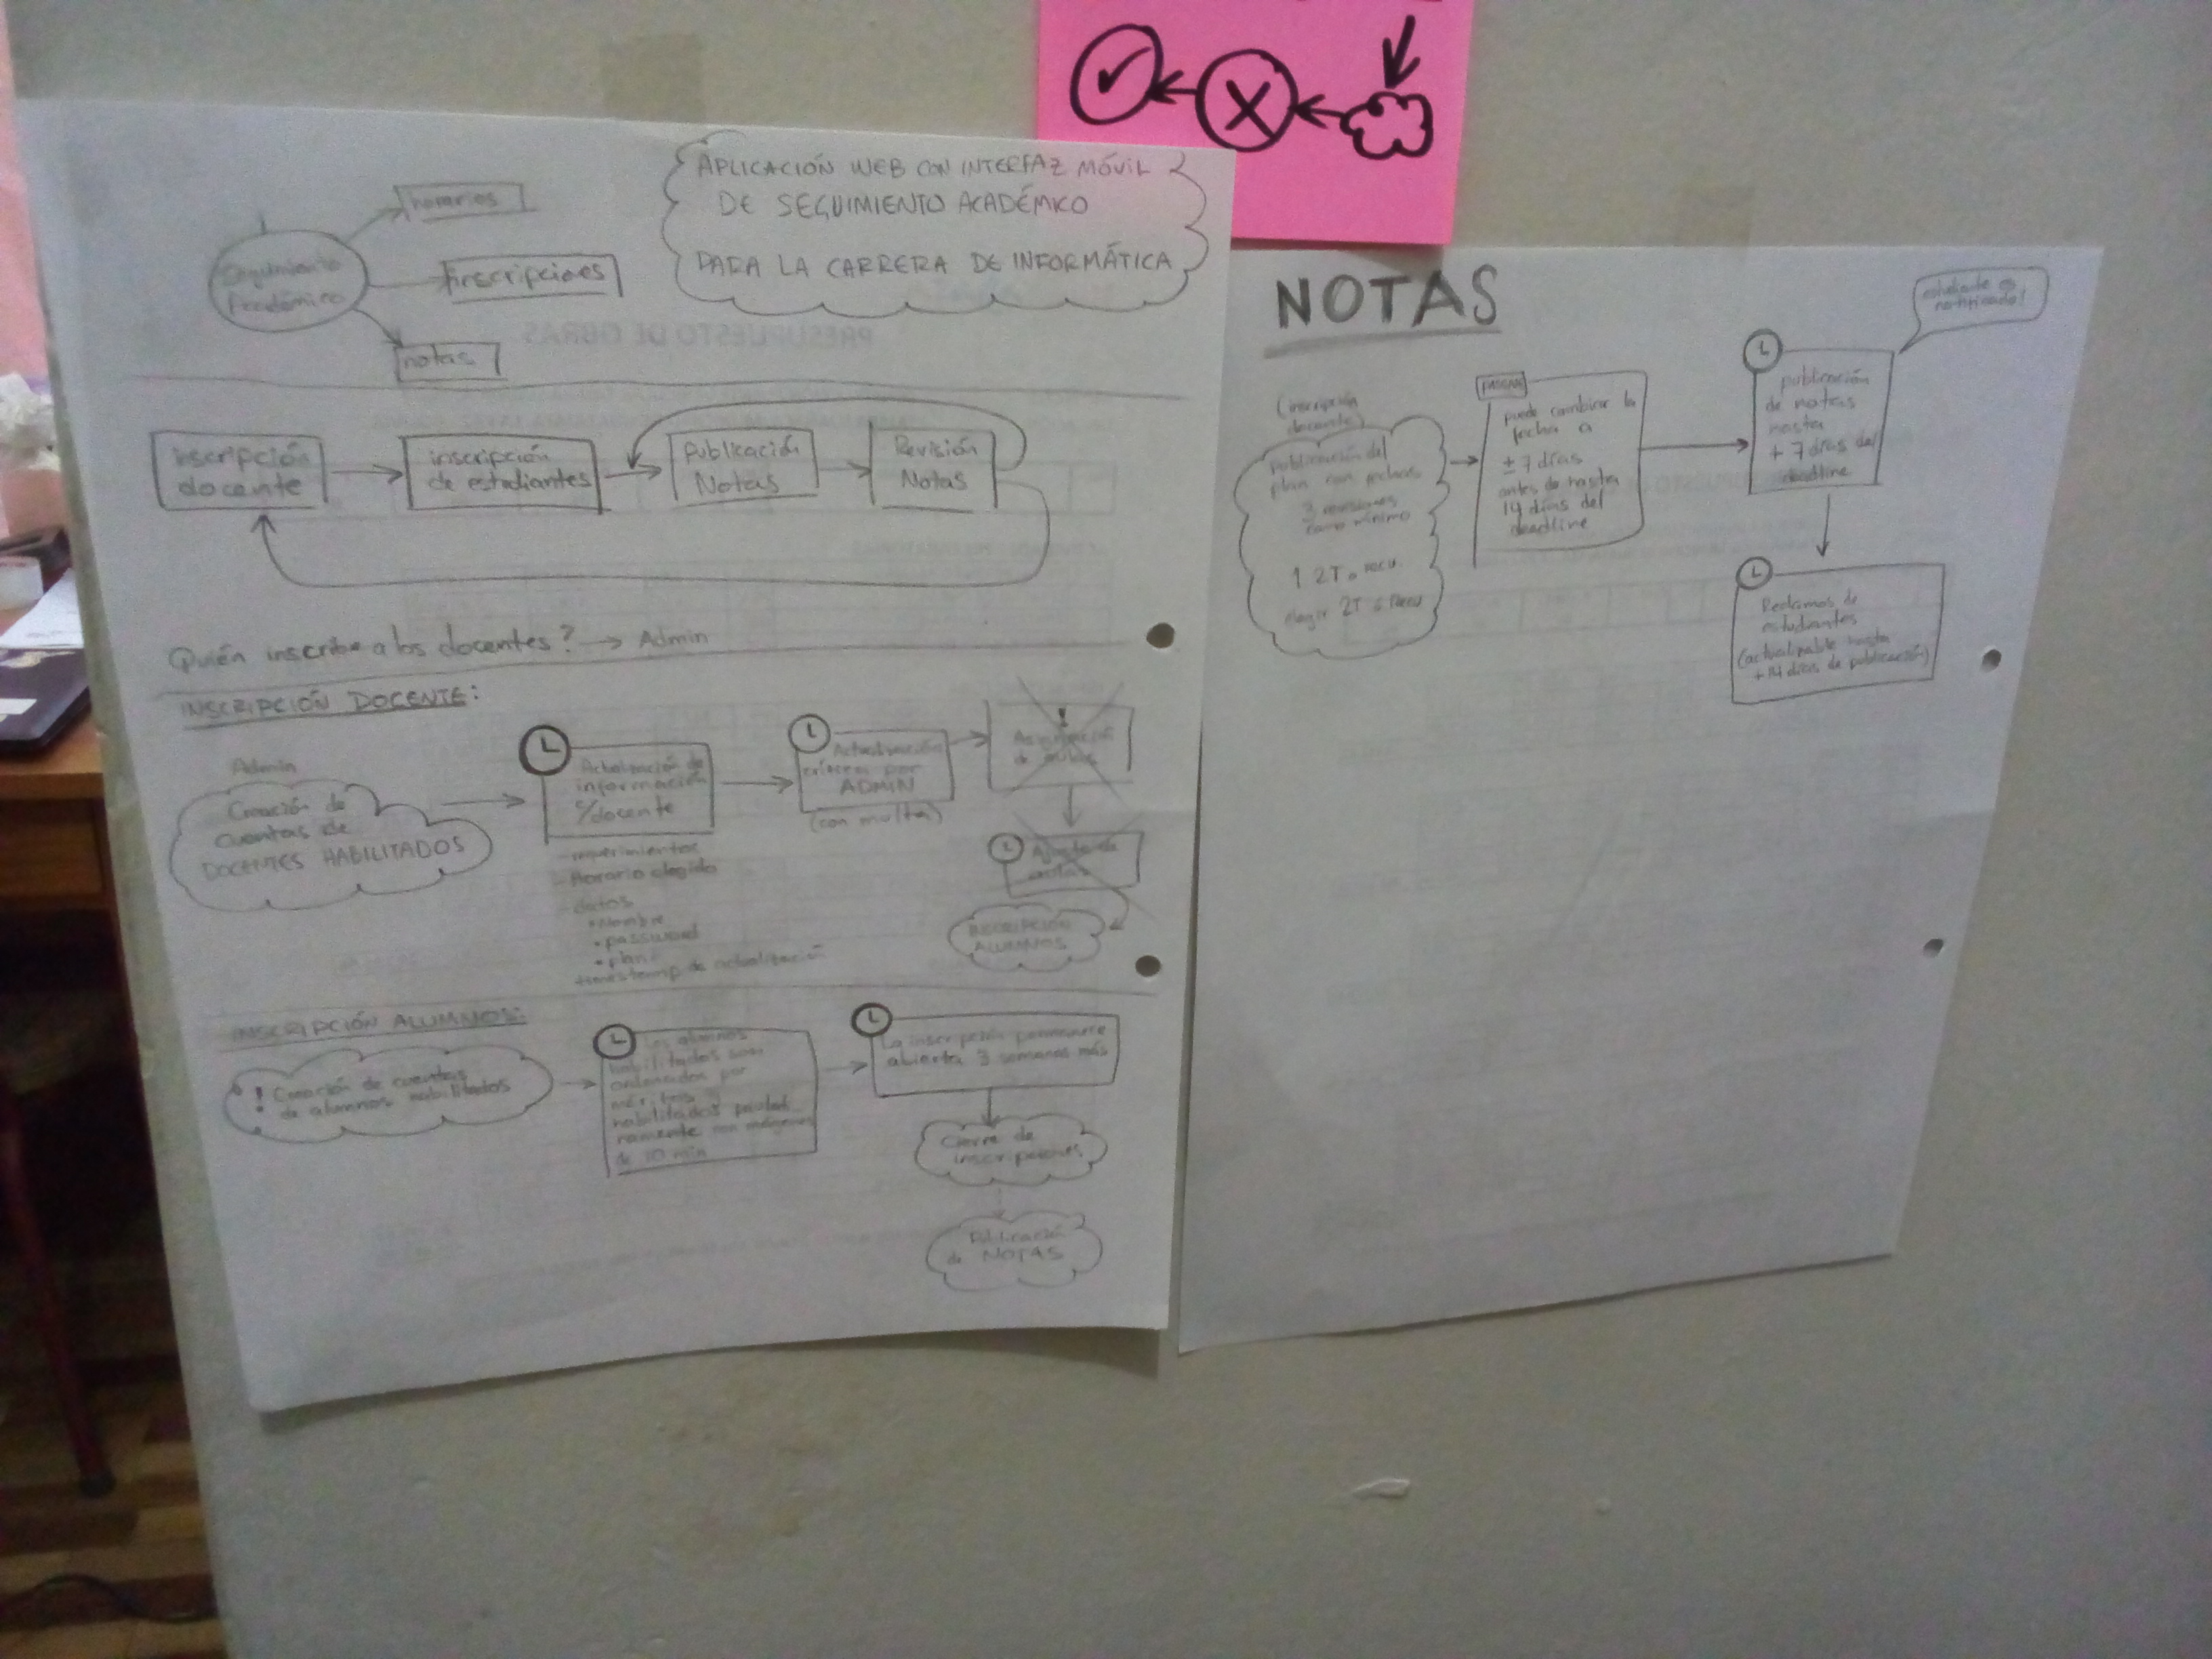 APLICACIÓN WEB CON INTERFAZ MÓVIL
DE SEGUIMIENTO ACADÉMICO
PARA LA CARRERA DE INFORMÁTICA
Seguimiento
Académico
horarios
inscripciones
notas
inscripción
docente
inscripción
de estudiantes
Publicación
Notas
Revisión
Notas
Quién inscribe a los docentes? → Admin
INSCRIPCIÓN DOCENTE:
Admin
Creación de
cuentas de
DOCENTES HABILITADOS
Actualización de
información
c/docente
- requerimientos
- Horario elegido
- datos
• Nombre
• password
• plan
de actualización
Actualización
por
ADMIN
(con multa)
!
Asignación
de aulas
Ajuste de
aulas
INSCRIPCIÓN
ALUMNOS
INSCRIPCIÓN ALUMNOS:
! Creación de cuentas
de alumnos habilitados
Los alumnos
habilitados son
ordenados por
méritos y
habilitados
con márgenes
de 10 min
La inscripción permanece
abierta 3 semanas más
Cierre de
inscripciones
Publicación
de NOTAS
NOTAS
(inscripción
docente)
publicación del
plan con fechas
3 revisiones
como mínimo
1 2T o recu.
elegir 2T ó Recu
puede cambiar la
fecha a
± 7 días
antes de hasta
14 días del
deadline
publicación
de notas
hasta
+ 7 días del
deadline
estudiante es
notificado!
Reclamos de
estudiantes
(actualizable hasta
+14 días de publicación)
PRESUPUESTO DE OBRAS